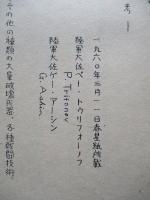 考。
一九六〇年二月一一日春星紙所載
陸軍大佐ペー・トゥリフォーノフ
P. Trifonov
陸軍大佐ゲー・アーシン
G. Ashin
その他の種類の大量破壊兵器、各種戦闘技術、